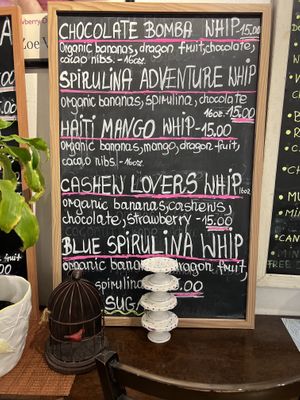 CHOCOLATE BOMBA WHIP -15.00
Organic bananas, dragon fruit, chocolate,
cacao nibs. -16oz.
SPIRULINA ADVENTURE WHIP
organic bananas, spirulina, chocolate
16oz -15.00
HAITI MANGO WHIP -15.00
organic bananas, mango, dragon fruit,
cacao nibs. -16oz
CASHEW LOVERS WHIP 16oz
organic bananas, cashews,
chocolate, strawberry -15.00
BLUE SPIRULINA WHIP
organic dragon fruit,
spirulina 5.00
SUGA